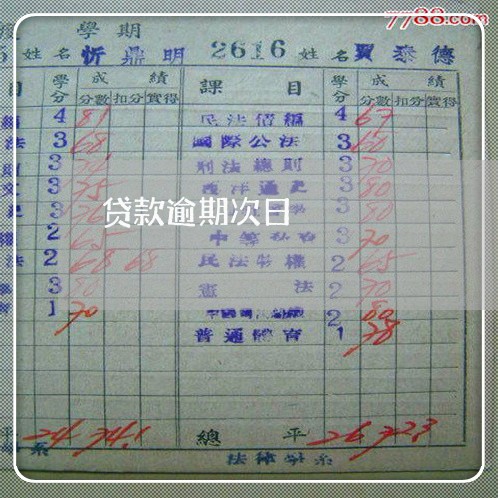 7788.com
學期
姓名 忻鼎明 2616 姓名 賈泰德
目 學分 成績 課目 學分 成績
分數 扣分 實得 分數 扣分 實得
4 81 民法債編 4 67
法 3 68 國際公法 3 60
3 刑法總則 3 70
3 75 西洋通史 3 80
3 3 80
貸款逾期次日
2 65 3 70
法 2 68 68 民法物權 2 65
3 80 憲法 2 70
1 70 2 80
普通體育 1 78
平 24 74.1 總平 26 72.3
系 法律學系